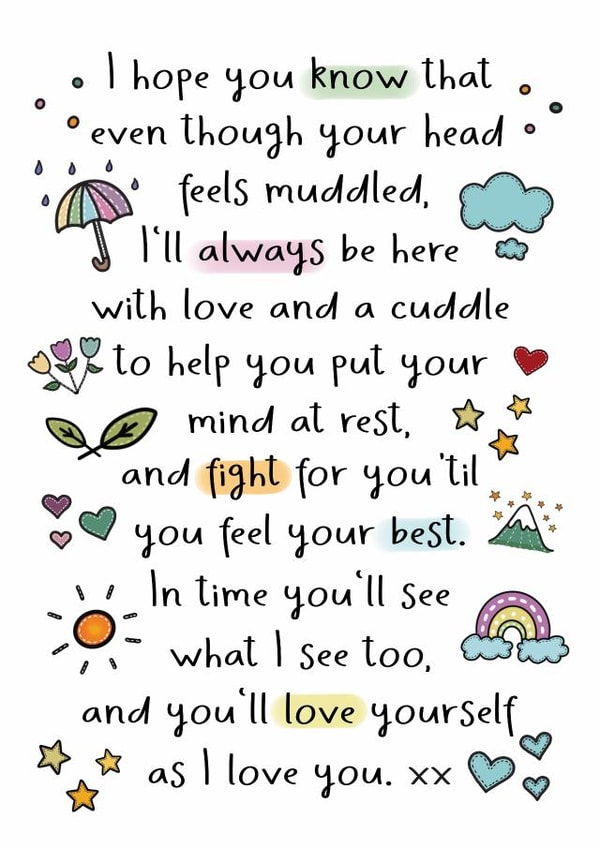 I hope you know that
even though your head
feels muddled,
I'll always be here
with love and a cuddle
to help you put your
mind at rest,
and fight for you 'til
you feel your best.
In time you'll see
what I see too,
and you'll love yourself
as I love you. xx